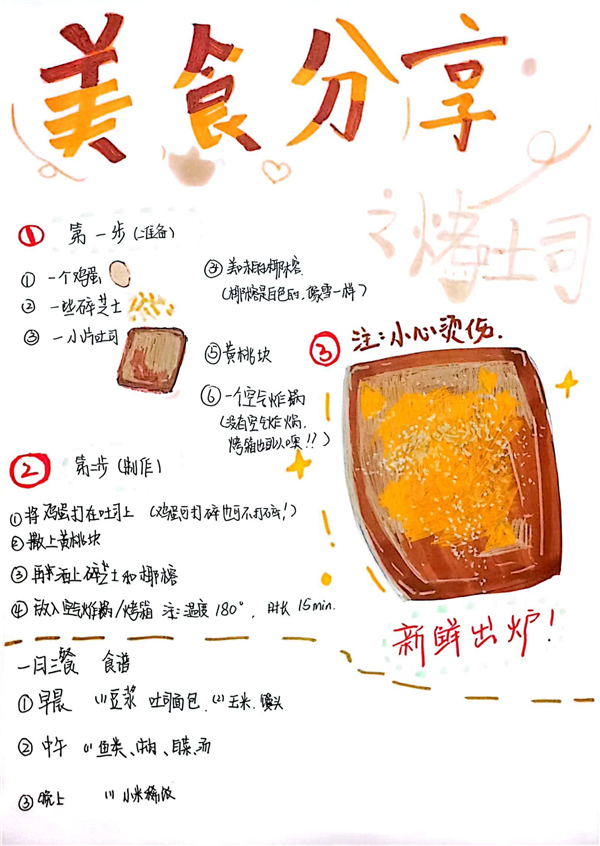 美食分享
之烤吐司
① 第一步(准备)
① 一个鸡蛋
② 一些碎芝士
③ 一小片吐司
④ 美味的椰蓉
(椰蓉是白色的,像雪一样)
⑤ 黄桃块
⑥ 一个空气炸锅
(没有空气炸锅,
烤箱也可以噢!!)
② 第二步(制作)
① 将鸡蛋打在吐司上 (鸡蛋可打碎也可不打碎!)
② 撒上黄桃块
③ 再来洒上碎芝士和椰蓉
④ 放入空气炸锅/烤箱 注:温度180°, 时长15min.
③ 注:小心烫伤.
新鲜出炉!
一日三餐 食谱
① 早晨 (1)豆浆 吐司面包, (2)玉米、馒头
② 中午 (1)鱼类、肉、蔬菜、汤
③ 晚上 (1)小米稀饭